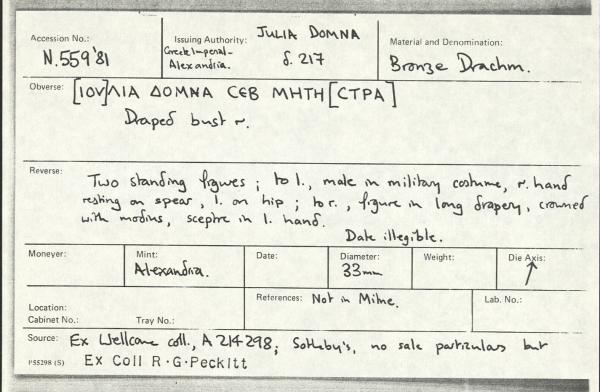 Accession No.: N.559'81
Issuing Authority: JULIA DOMNA
Greek Imperial-
Alexandria. d. 217
Material and Denomination:
Bronze Drachm.
Obverse: [ΙΟV]ΛΙΑ ΔΟΜΝΑ CЄΒ ΜΗΤΗ [CΤΡΑ]
Draped bust r.
Reverse: Two standing figures; to l., male in military costume, r. hand
resting on spear, l. on hip; to r., figure in long drapery, crowned
with modius, sceptre in l. hand.
Date illegible.
Moneyer:
Mint: Alexandria.
Date:
Diameter: 33mm
Weight:
Die Axis: ↑
Location:
Cabinet No.: Tray No.:
References: Not in Milne.
Lab. No.:
Source: Ex Wellcome coll., A 214298; Sotheby's, no sale particulars but
P55298 (S) Ex Coll R.G.Peckitt